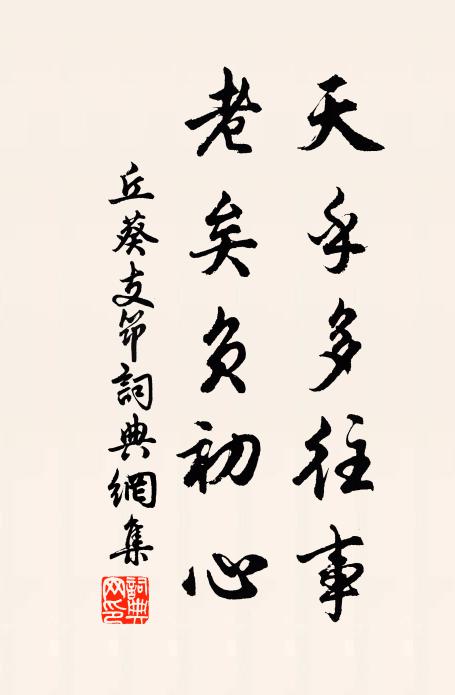 天乎多往事
老矣負初心
丘葵支筇詞典網集
詞典網印